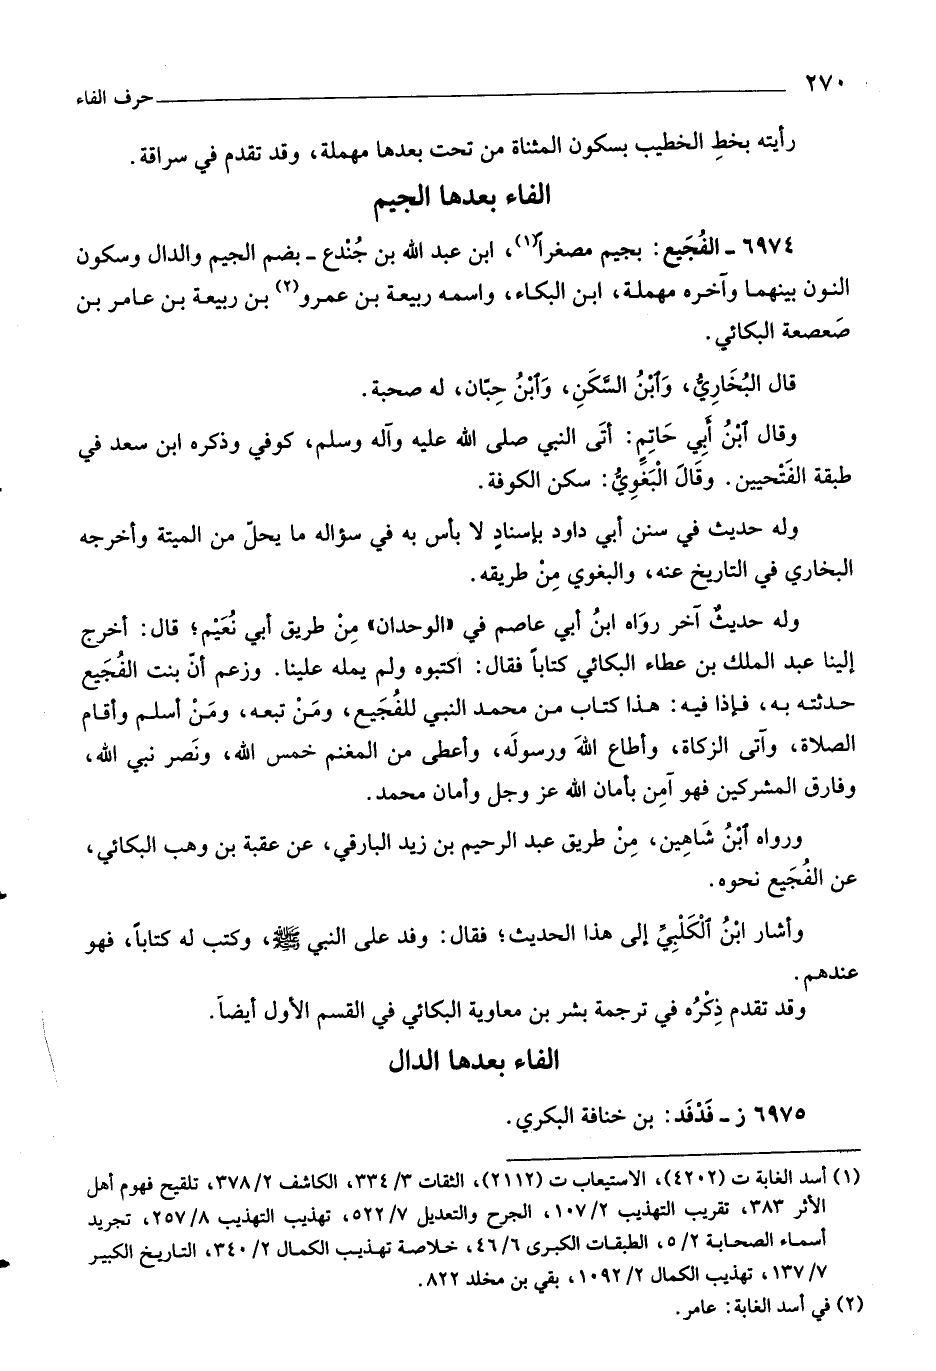 ٢٧٠
حرف الفاء
رأيته بخطِ الخطيب بسكون المثناة من تحت بعدها مهملة، وقد تقدم في سراقة.
الفاء بعدها الجيم
٦٩٧٤ ـ الفُجَيع: بجيم مصغراً(١)، ابن عبد الله بن جُنْدع ـ بضم الجيم والدال وسكون
النون بينهما وآخره مهملة، ابن البكاء، واسمه ربيعة بن عمرو(٢) بن ربيعة بن عامر بن
صَعصعة البكائي.
قال البُخَارِيُّ، وَٱبْنُ السَّكَنِ، وَٱبْنُ حِبّان، له صحبة.
وقال ٱبْنُ أَبِي حَاتِمٍ: أتَى النبي صلى الله عليه وآله وسلم، كوفي وذكره ابن سعد في
طبقة الفَتْحيين. وقَالَ الْبَغَوِيُّ: سكن الكوفة.
وله حديث في سنن أبي داود بإسنادٍ لا بأس به في سؤاله ما يحلّ من الميتة وأخرجه
البخاري في التاريخ عنه، والبغوي مِنْ طريقه.
وله حديثٌ آخر روَاه ابنُ أبي عاصم في «الوحدان» مِنْ طريق أبي نُعَيْم؛ قال: أخرج
إلينا عبد الملك بن عطاء البكائي كتاباً فقال: اكتبوه ولم يمله علينا. وزعم أنّ بنت الفُجَيع
حدثته به، فإذا فيه: هذا كتاب من محمد النبي للفُجَيع، ومَنْ تبعه، ومَنْ أسلم وأقام
الصلاة، وآتى الزكاة، وأطاع اللهَ ورسولَه، وأعطى من المغنم خمس الله، ونَصر نبي الله،
وفارق المشركين فهو آمِن بأمان الله عز وجل وأمان محمد.
ورواه ٱبْنُ شَاهِين، مِنْ طريق عبد الرحيم بن زيد البارقي، عن عقبة بن وهب البكائي،
عن الفُجَيع نحوه.
وأشار ابْنُ ٱلْكَلْبِيِّ إلى هذا الحديث؛ فقال: وفد على النبي ﷺ، وكتب له كتاباً، فهو
عندهم.
وقد تقدم ذِكْرُه في ترجمة بشر بن معاوية البكائي في القسم الأول أيضاً.
الفاء بعدها الدال
٦٩٧٥ ز ـ فَدْفَد: بن خنافة البكري.
(١) أسد الغابة ت (٤٢٠٢)، الاستيعاب ت (٢١١٢)، الثقات ٣/ ٣٣٤، الكاشف ٢/ ٣٧٨، تلقيح فهوم أهل
الأثر ٣٨٣، تقريب التهذيب ٢/ ١٠٧، الجرح والتعديل ٧/ ٥٢٢، تهذيب التهذيب ٨/ ٢٥٧، تجريد
أسماء الصحابة ٢/ ٥، الطبقات الكبرى ٦/ ٤٦، خلاصة تهذيب الكمال ٢/ ٣٤٠، التاريخ الكبير
٧/ ١٣٧، تهذيب الكمال ٢/ ١٠٩٢، بقي بن مخلد ٨٢٢.
(٢) في أسد الغابة: عامر.